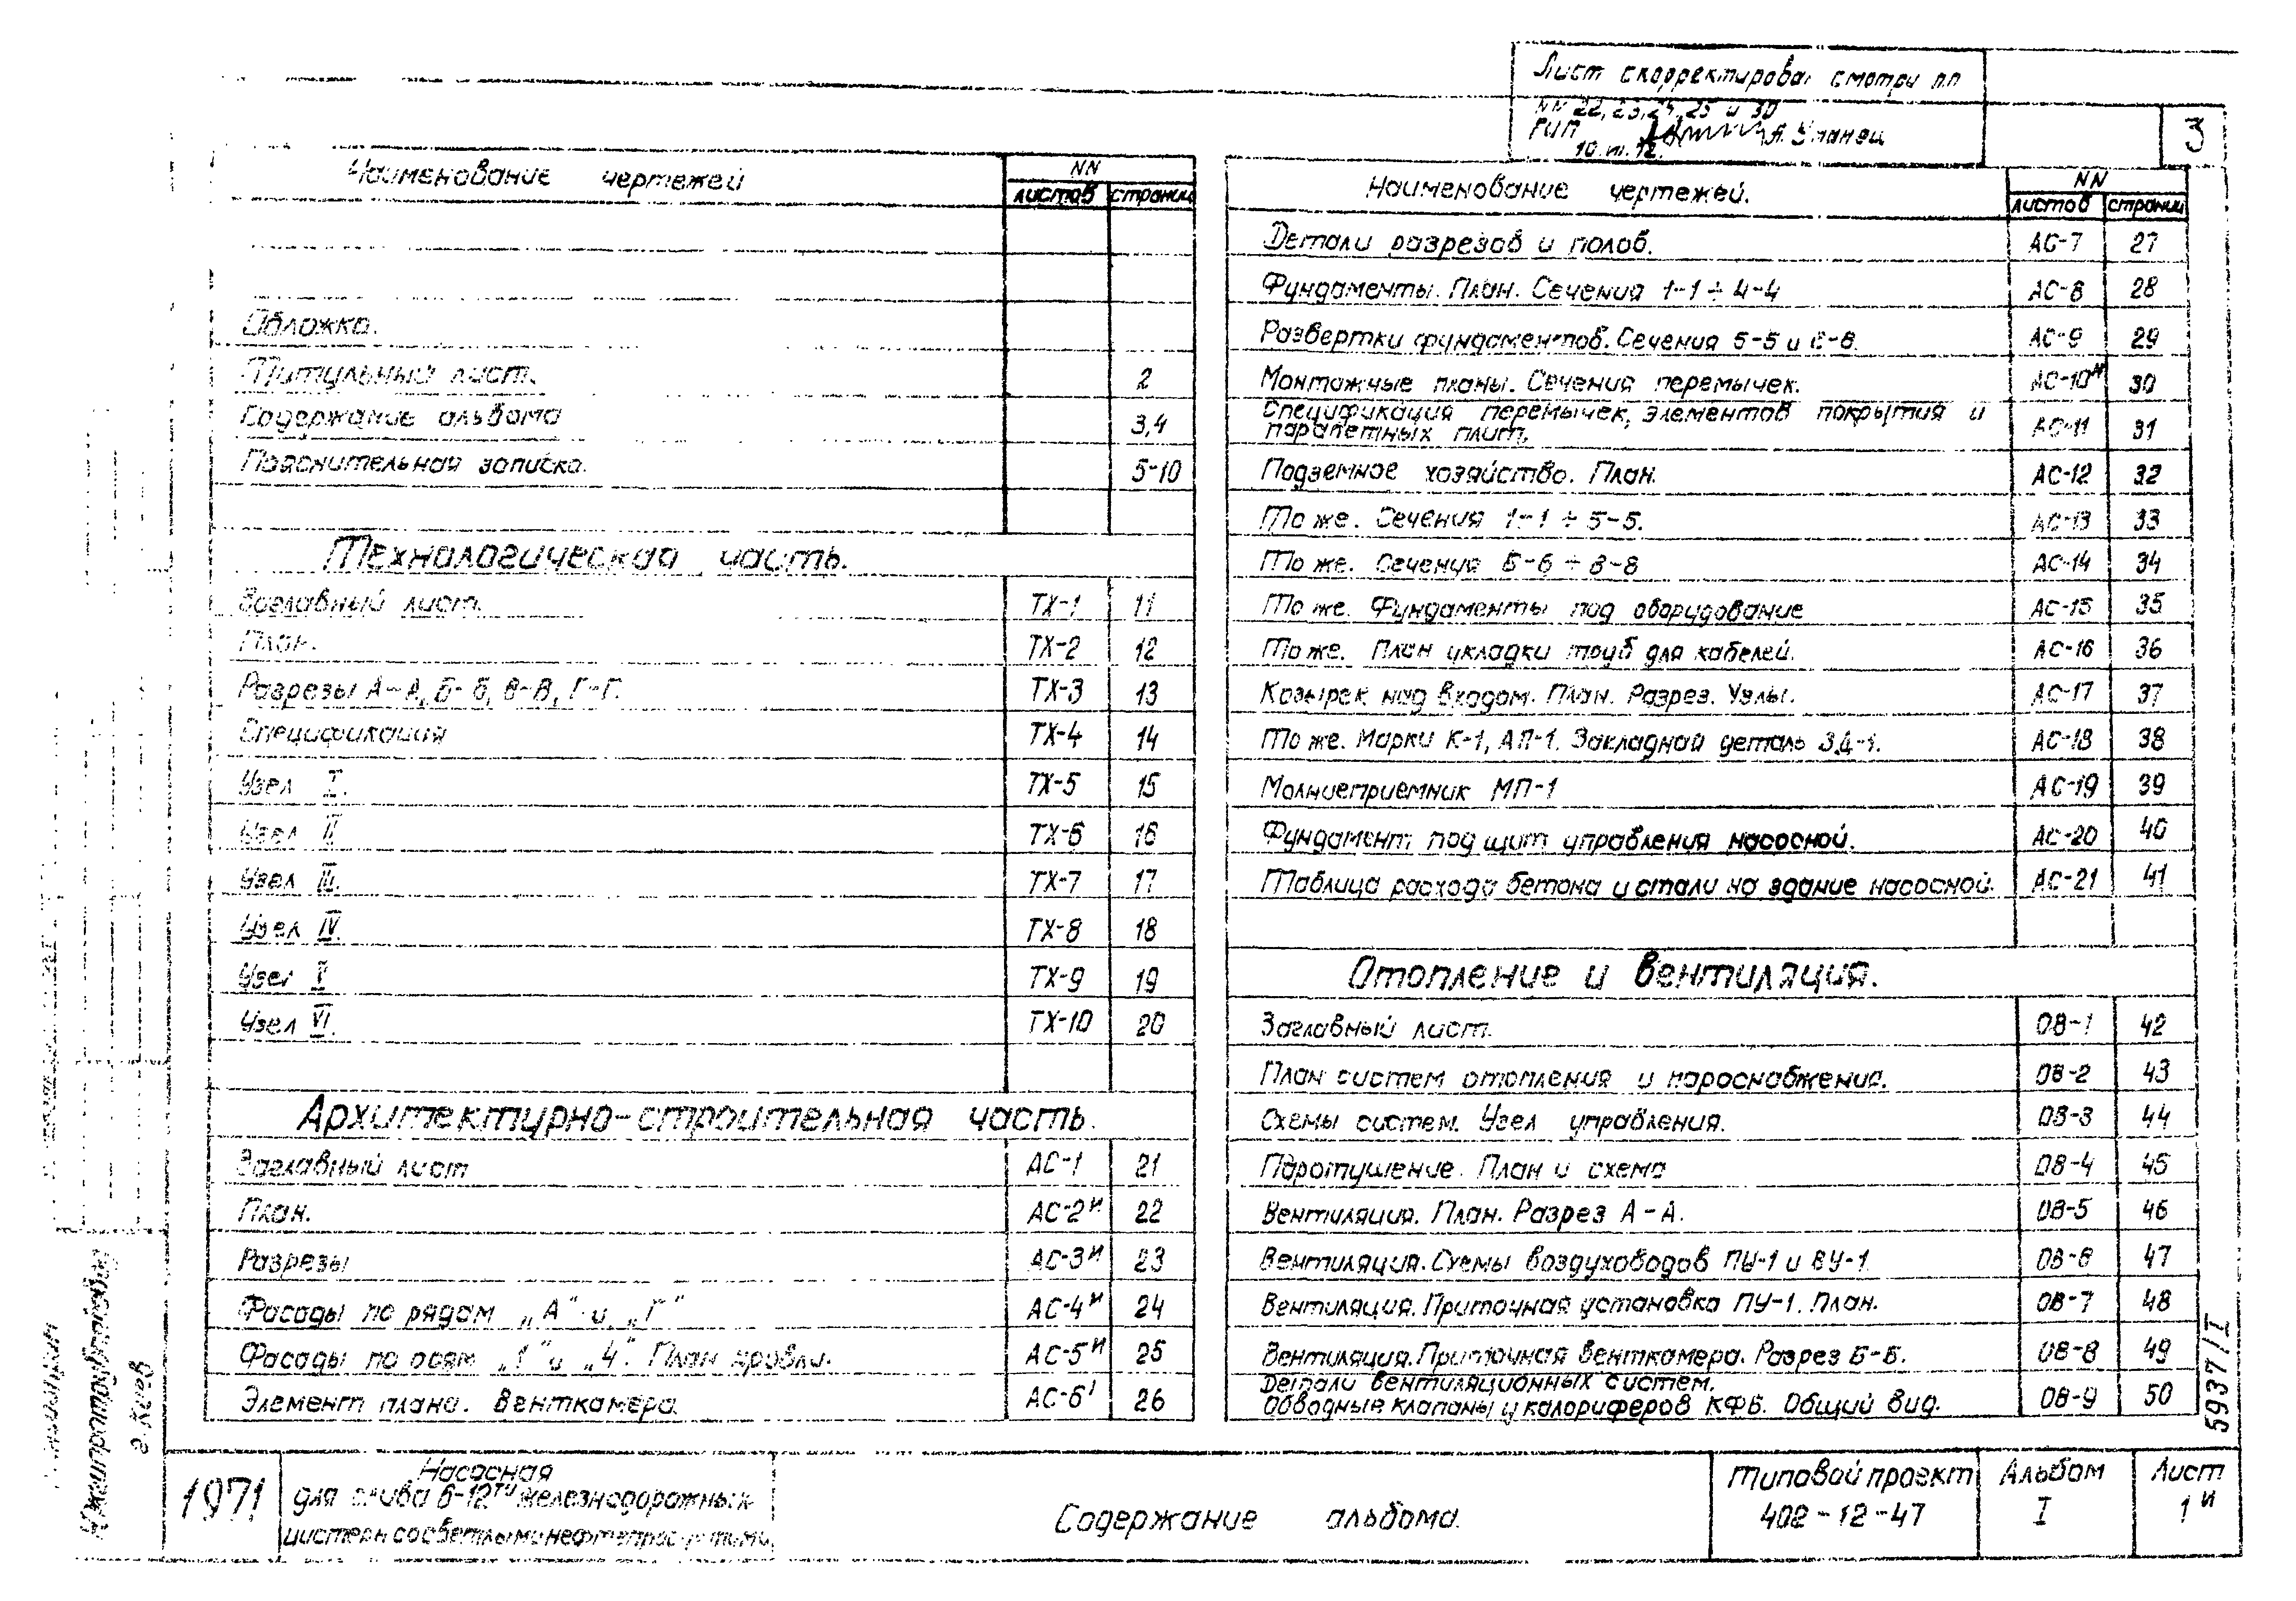 Лист скорректирован смотри пп
NN 22, 23, 24, 25 и 30
ГИП А. Уманец
10.III.72.
3
Наименование чертежей
NN
листов страниц
Обложка.
Титульный лист. 2
Содержание альбома 3,4
Пояснительная записка. 5-10
Технологическая часть.
Заглавный лист. ТХ-1 11
План. ТХ-2 12
Разрезы А-А, Б-Б, В-В, Г-Г. ТХ-3 13
Спецификация ТХ-4 14
Узел I. ТХ-5 15
Узел II ТХ-6 16
Узел III. ТХ-7 17
Узел IV. ТХ-8 18
Узел V ТХ-9 19
Узел VI. ТХ-10 20
Архитектурно-строительная часть.
Заглавный лист АС-1 21
План. АС-2и 22
Разрезы АС-3и 23
Фасады по рядам „А" и „Г" АС-4и 24
Фасады по осям „1" и „4". План кровли. АС-5и 25
Элемент плана. Венткамера. АС-6 26
Наименование чертежей.
NN
листов страниц
Детали разрезов и полов. АС-7 27
Фундаменты. План. Сечения 1-1 ÷ 4-4 АС-8 28
Развертки фундаментов. Сечения 5-5 и 6-6. АС-9 29
Монтажные планы. Сечения перемычек. АС-10и 30
Спецификация перемычек, элементов покрытия и
парапетных плит. АС-11 31
Подземное хозяйство. План. АС-12 32
То же. Сечения 1-1 ÷ 5-5. АС-13 33
То же. Сечения 6-6 ÷ 8-8 АС-14 34
То же. Фундаменты под оборудование АС-15 35
То же. План укладки труб для кабелей. АС-16 36
Козырек над входом. План. Разрез. Узлы. АС-17 37
То же. Марки К-1, АП-1. Закладная деталь ЗД-1. АС-18 38
Молниеприемник МП-1 АС-19 39
Фундамент под щит управления насосной. АС-20 40
Таблица расхода бетона и стали на здание насосной. АС-21 41
Отопление и вентиляция.
Заглавный лист. ОВ-1 42
План систем отопления и пароснабжения. ОВ-2 43
Схемы систем. Узел управления. ОВ-3 44
Паротушение. План и схема ОВ-4 45
Вентиляция. План. Разрез А-А. ОВ-5 46
Вентиляция. Схемы воздуховодов ПУ-1 и ВУ-1. ОВ-6 47
Вентиляция. Приточная установка ПУ-1. План. ОВ-7 48
Вентиляция. Приточная венткамера. Разрез Б-Б. ОВ-8 49
Детали вентиляционных систем.
Обводные клапаны у калориферов КФБ. Общий вид. ОВ-9 50
5937/I
Южгипронефтепровод
г. Киев
1971
Насосная
для слива 6-12ти железнодорожных
цистерн со светлыми нефтепродуктами
Содержание альбома.
Типовой проект
402-12-47
Альбом
I
Лист
1и